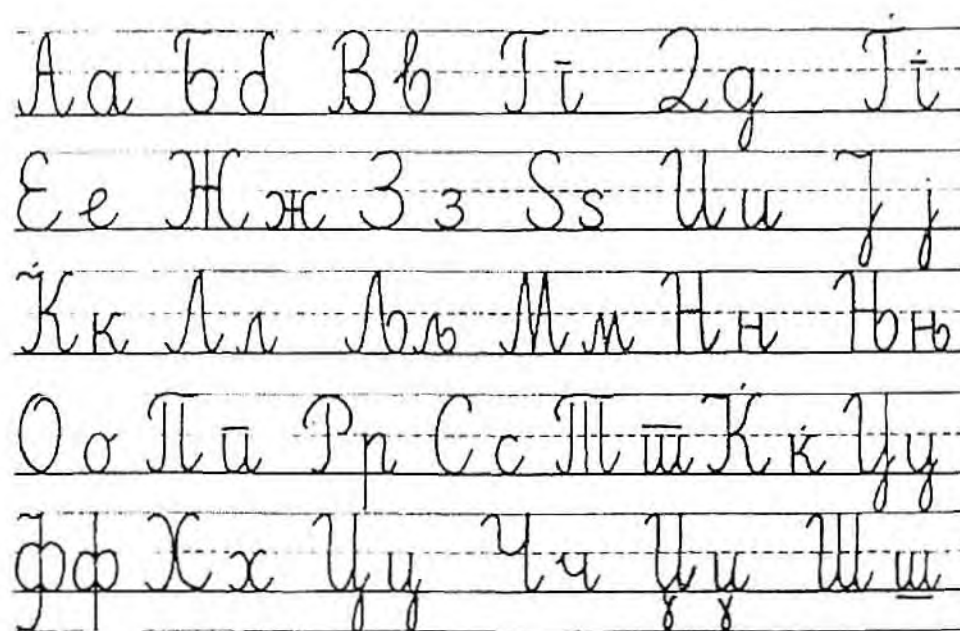 Аа Бб Вв Гг Дд Ѓѓ
Ее Жж Зз Ѕѕ Ии Јј
Кк Лл Љљ Мм Нн Њњ
Оо Пп Рр Сс Тт Ќќ Уу
Фф Хх Цц Чч Џџ Шш